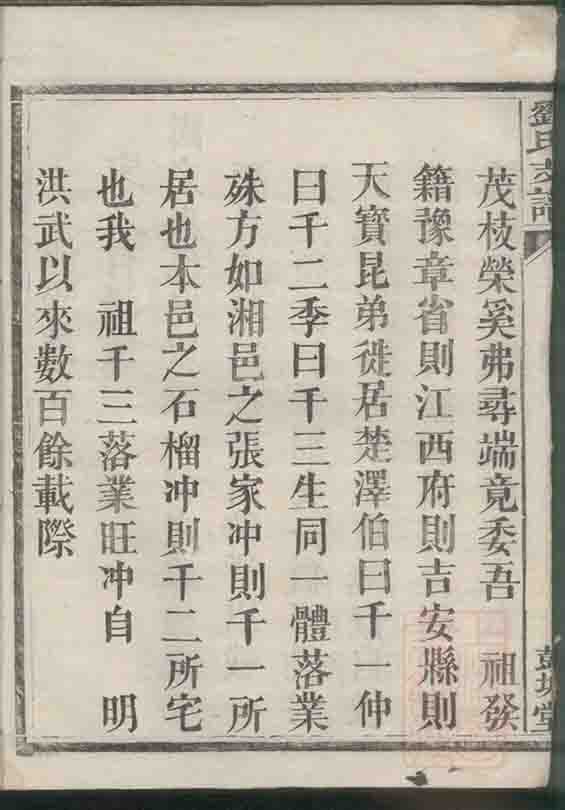 劉氏支譜
彭城堂
茂枝榮奚弗尋端竟委吾　祖發
籍豫章省則江西府則吉安縣則
天寶昆弟徙居楚澤伯曰千一仲
曰千二季曰千三生同一體落業
殊方如湘邑之張家冲則千一所
居也本邑之石榴冲則千二所宅
也我　祖千三落業旺冲自　明
洪武以來數百餘載際